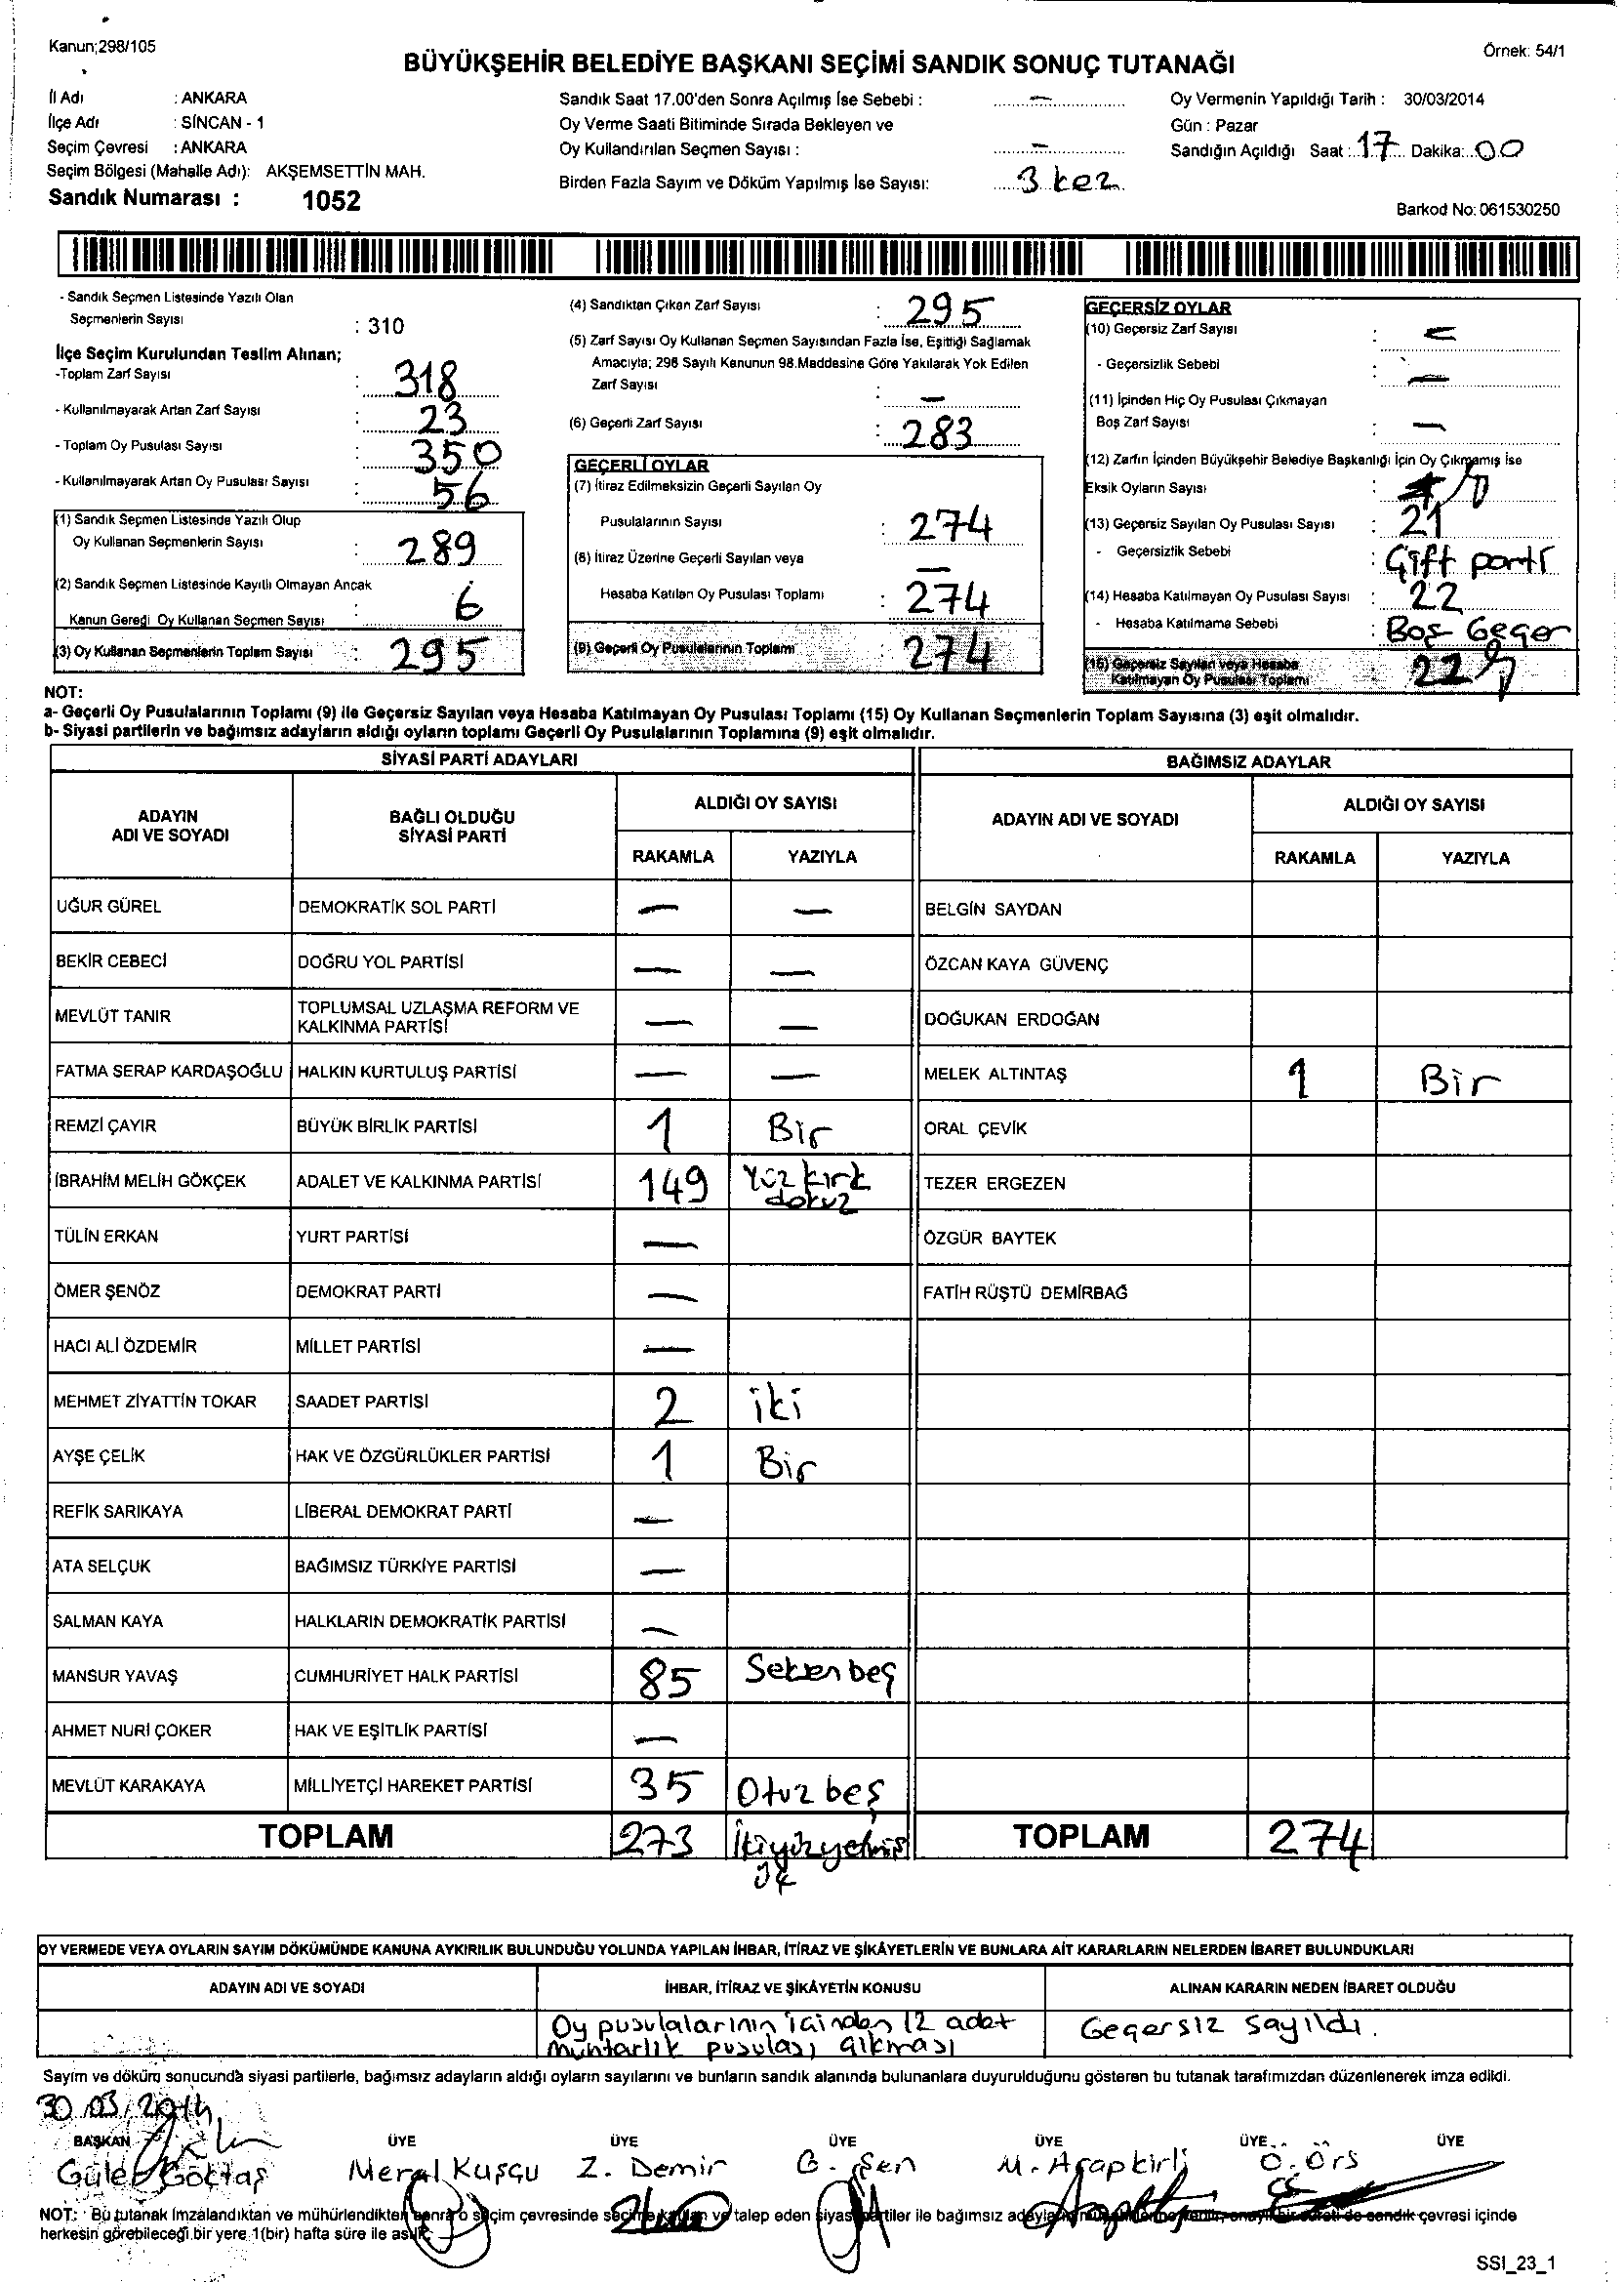 Kanun;298/105
Örnek: 54/1
BÜYÜKŞEHİR BELEDİYE BAŞKANI SEÇİMİ SANDIK SONUÇ TUTANAĞI
İl Adı : ANKARA
İlçe Adı : SİNCAN - 1
Seçim Çevresi : ANKARA
Seçim Bölgesi (Mahalle Adı): AKŞEMSETTİN MAH.
Sandık Numarası : 1052
Sandık Saat 17.00'den Sonra Açılmış İse Sebebi : —
Oy Verme Saati Bitiminde Sırada Bekleyen ve
Oy Kullandırılan Seçmen Sayısı : —
Birden Fazla Sayım ve Döküm Yapılmış İse Sayısı: 3 kez
Oy Vermenin Yapıldığı Tarih : 30/03/2014
Gün : Pazar
Sandığın Açıldığı Saat : 17 Dakika: 00
Barkod No: 061530250
- Sandık Seçmen Listesinde Yazılı Olan
Seçmenlerin Sayısı : 310
İlçe Seçim Kurulundan Teslim Alınan;
-Toplam Zarf Sayısı : 318
- Kullanılmayarak Artan Zarf Sayısı : 23
- Toplam Oy Pusulası Sayısı : 350
- Kullanılmayarak Artan Oy Pusulası Sayısı : 56
(1) Sandık Seçmen Listesinde Yazılı Olup
Oy Kullanan Seçmenlerin Sayısı : 289
(2) Sandık Seçmen Listesinde Kayıtlı Olmayan Ancak
Kanun Gereği Oy Kullanan Seçmen Sayısı : 6
(3) Oy Kullanan Seçmenlerin Toplam Sayısı : 295
(4) Sandıktan Çıkan Zarf Sayısı : 295
(5) Zarf Sayısı Oy Kullanan Seçmen Sayısından Fazla İse, Eşitliği Sağlamak
Amacıyla; 298 Sayılı Kanunun 98.Maddesine Göre Yakılarak Yok Edilen
Zarf Sayısı : —
(6) Geçerli Zarf Sayısı : 283
GEÇERLİ OYLAR
(7) İtiraz Edilmeksizin Geçerli Sayılan Oy
Pusulalarının Sayısı : 274
(8) İtiraz Üzerine Geçerli Sayılan veya —
Hesaba Katılan Oy Pusulası Toplamı : 274
(9) Geçerli Oy Pusulalarının Toplamı : 274
GEÇERSİZ OYLAR
(10) Geçersiz Zarf Sayısı : —
- Geçersizlik Sebebi : —
(11) İçinden Hiç Oy Pusulası Çıkmayan
Boş Zarf Sayısı : —
(12) Zarfın İçinden Büyükşehir Belediye Başkanlığı İçin Oy Çıkmamış İse
Eksik Oyların Sayısı :
(13) Geçersiz Sayılan Oy Pusulası Sayısı : 21
- Geçersizlik Sebebi : Çift parti
(14) Hesaba Katılmayan Oy Pusulası Sayısı : 22
- Hesaba Katılmama Sebebi : Boş Geçer
(15) Geçersiz Sayılan veya Hesaba
Katılmayan Oy Pusulası Toplamı : 22
NOT:
a- Geçerli Oy Pusulalarının Toplamı (9) ile Geçersiz Sayılan veya Hesaba Katılmayan Oy Pusulası Toplamı (15) Oy Kullanan Seçmenlerin Toplam Sayısına (3) eşit olmalıdır.
b- Siyasi partilerin ve bağımsız adayların aldığı oyların toplamı Geçerli Oy Pusulalarının Toplamına (9) eşit olmalıdır.
SİYASİ PARTİ ADAYLARI BAĞIMSIZ ADAYLAR
ADAYIN
ADI VE SOYADI
BAĞLI OLDUĞU
SİYASİ PARTİ
ALDIĞI OY SAYISI
RAKAMLA YAZIYLA
ADAYIN ADI VE SOYADI
ALDIĞI OY SAYISI
RAKAMLA YAZIYLA
UĞUR GÜREL DEMOKRATİK SOL PARTİ — — BELGİN SAYDAN
BEKİR CEBECİ DOĞRU YOL PARTİSİ — — ÖZCAN KAYA GÜVENÇ
MEVLÜT TANIR TOPLUMSAL UZLAŞMA REFORM VE
KALKINMA PARTİSİ — — DOĞUKAN ERDOĞAN
FATMA SERAP KARDAŞOĞLU HALKIN KURTULUŞ PARTİSİ — — MELEK ALTINTAŞ 1 Bir
REMZİ ÇAYIR BÜYÜK BİRLİK PARTİSİ 1 Bir ORAL ÇEVİK
İBRAHİM MELİH GÖKÇEK ADALET VE KALKINMA PARTİSİ 149 Yüz kırk
dokuz TEZER ERGEZEN
TÜLİN ERKAN YURT PARTİSİ — ÖZGÜR BAYTEK
ÖMER ŞENÖZ DEMOKRAT PARTİ — FATİH RÜŞTÜ DEMİRBAĞ
HACI ALİ ÖZDEMİR MİLLET PARTİSİ —
MEHMET ZİYATTİN TOKAR SAADET PARTİSİ 2 iki
AYŞE ÇELİK HAK VE ÖZGÜRLÜKLER PARTİSİ 1 Bir
REFİK SARIKAYA LİBERAL DEMOKRAT PARTİ —
ATA SELÇUK BAĞIMSIZ TÜRKİYE PARTİSİ —
SALMAN KAYA HALKLARIN DEMOKRATİK PARTİSİ —
MANSUR YAVAŞ CUMHURİYET HALK PARTİSİ 85 Seksen beş
AHMET NURİ ÇOKER HAK VE EŞİTLİK PARTİSİ —
MEVLÜT KARAKAYA MİLLİYETÇİ HAREKET PARTİSİ 35 Otuz beş
TOPLAM 273 İkiyüzyetmiş TOPLAM 274
OY VERMEDE VEYA OYLARIN SAYIM DÖKÜMÜNDE KANUNA AYKIRILIK BULUNDUĞU YOLUNDA YAPILAN İHBAR, İTİRAZ VE ŞİKÂYETLERİN VE BUNLARA AİT KARARLARIN NELERDEN İBARET BULUNDUKLARI
ADAYIN ADI VE SOYADI İHBAR, İTİRAZ VE ŞİKÂYETİN KONUSU ALINAN KARARIN NEDEN İBARET OLDUĞU
Oy pusulalarının içinden 12 adet
muhtarlık pusulası çıkması
Geçersiz sayıldı.
Sayım ve döküm sonucunda siyasi partilerle, bağımsız adayların aldığı oyların sayılarını ve bunların sandık alanında bulunanlara duyurulduğunu gösteren bu tutanak tarafımızdan düzenlenerek imza edildi.
30.03/2014
BAŞKAN ÜYE ÜYE ÜYE ÜYE ÜYE ÜYE
Güler Göktaş Meral Kuşçu Z. Demir G. Şen M. Arapkirli Ö. Örs
NOT: Bu tutanak imzalandıktan ve mühürlendikten sonra o seçim çevresinde seçime katılan ve talep eden siyasi partiler ile bağımsız adayların çevresi içinde
herkesin görebileceği bir yere 1(bir) hafta süre ile asılır.
SSI_23_1